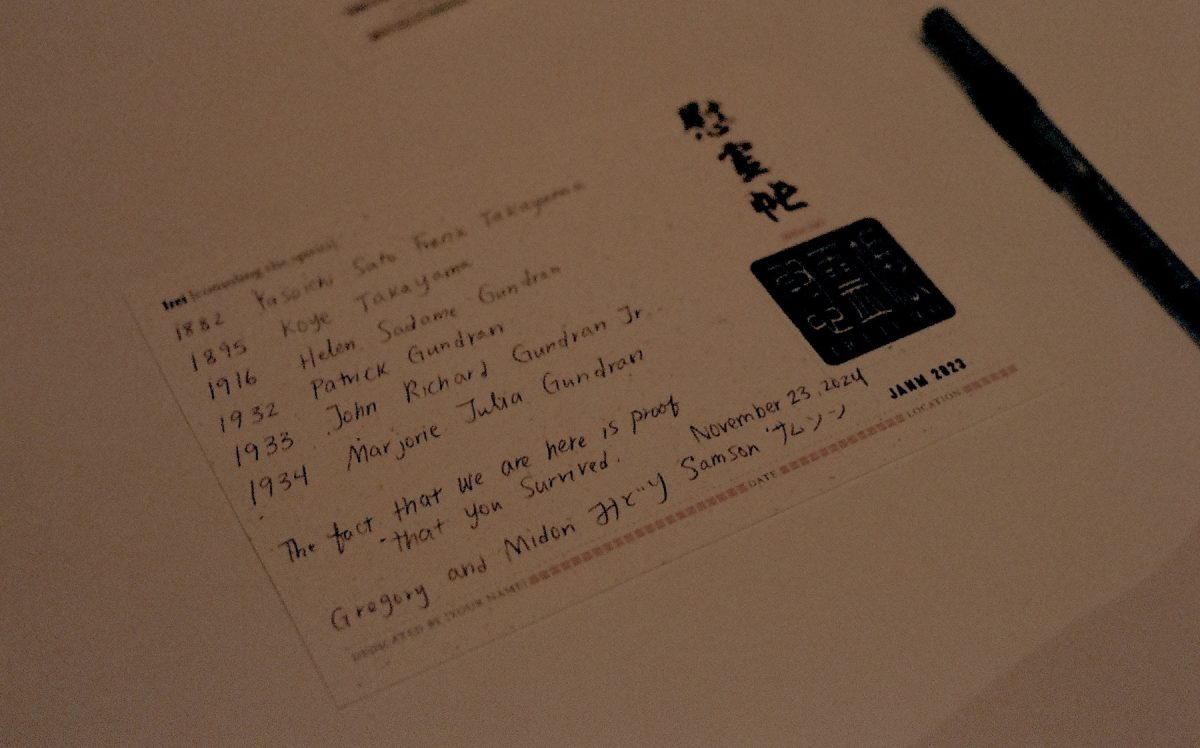 Irei
1882 Yasoichi Sato Frank Takayama
1895 Koye Takayama
1916 Helen Sadame Gundran
1932 Patrick Gundran
1933 John Richard Gundran Jr.
1934 Marjorie Julia Gundran
The fact that we are here is proof
that you survived.
November 23, 2024
Gregory and Midori Samson サムソン
DEDICATED BY (YOUR NAME)
DATE
LOCATION
JANM 2023
慰霊帖